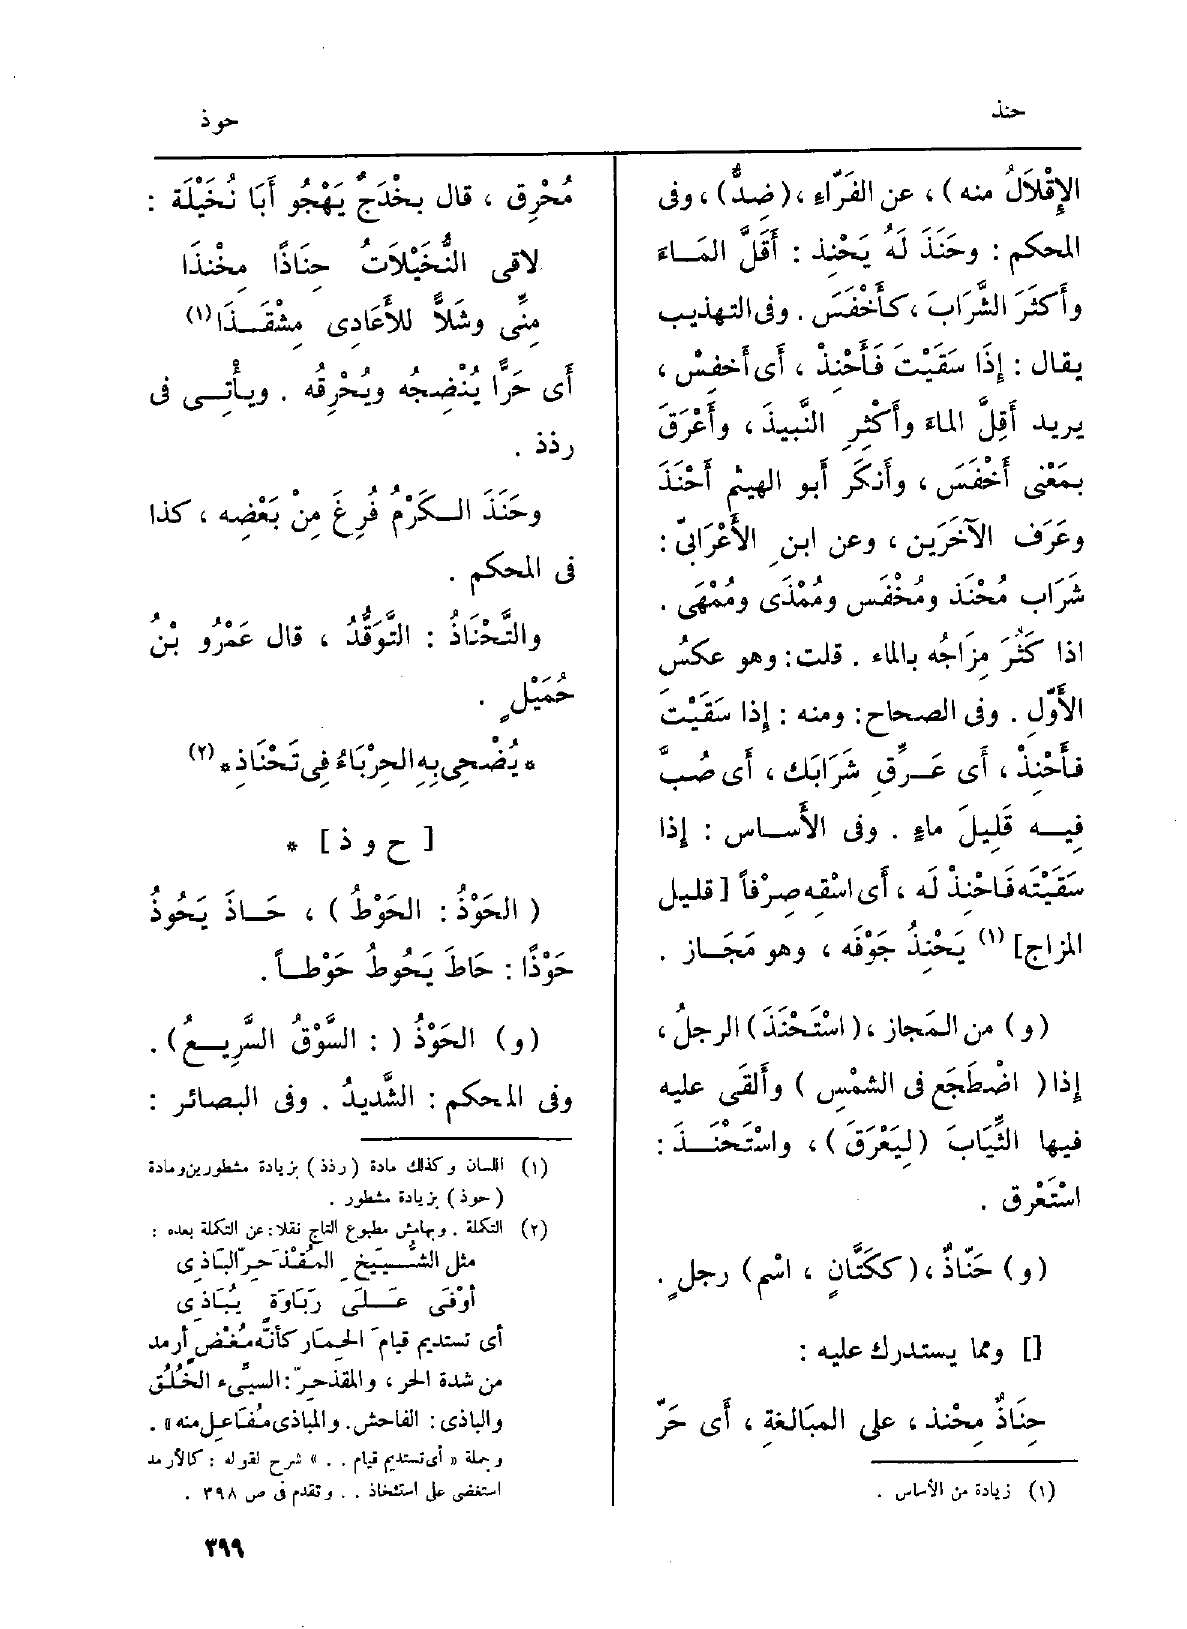 حنذ
حوذ
الإِقْلَالُ منه) ، عن الفَرّاءِ ، (ضِدٌّ) ، وفى
المحكم : وحَنَذَ لَهُ يَحْنِذ : أَقَلَّ المَـاءَ
وأَكثَرَ الشَّرَابَ ، كأَخْفَسَ . وفى التهذيب
يقال : إِذَا سَقَيْتَ فَأَحْنِذْ ، أَى أَخفِسْ ،
يريد أَقِلَّ الماءَ وأَكْثِرِ النَّبيذَ ، وأَعْرَقَ
بمَعْنى أَخْفَسَ ، وأَنكَر أَبو الهيثم أَحْنَذَ
وعَرَف الآخَرَين ، وعن ابنِ الأَعْرَابىّ :
شَرَاب مُحْنَذ ومُخْفَس ومُمْذَى ومُمْهَى .
اذا كَثُرَ مِزَاجُه بالماء . قلت : وهو عكسُ
الأَوَّلِ . وفى الصحاح : ومنه : إِذا سَقَيْتَ
فأَحْنِذْ ، أَى عَـرِّقِ شَرَابَك ، أَى صُبَّ
فِيـه قَلِيلَ ماءٍ . وفى الأَسـاس : إِذا
سَقَيْتَه فَاحْنِذْ لَه ، أَى اسْقِه صِرْفاً [ قليل
المزاج ] (١) يَحْنِذُ جَوْفَه ، وهو مَجَـاز .
(و) من المَجاز ، (اسْتَحْنَذَ) الرجلُ ،
إِذا ( اضْطَجَع فى الشمْسِ ) وأَلقَى عليه
فيها الثِّيَابَ (لِيَعْرَقَ) ، واسْتَحْنَـذَ :
اسْتَعْرق .
(و) حَنّاذٌ ، (ككَتَّانٍ ، اسْم) رجلٍ .
[] ومما يستدرك عليه :
حِنَاذٌ مِحْنذ ، على المبَالغةِ ، أَى حَرّ
(١) زيادة من الأساس .
مُحْرِق ، قال بخْدَجٌ يَهْجُو أَبَا نُخَيْلَة :
لاقى النُّخَيْلَاتُ حِنَاذًا مِحْنذَا
مِنِّى وشَلاًّ للأَعَادِى مِشْقَـذَا (١)
أَى حَرًّا يُنْضِجُه ويُحْرِقُه . ويأْتِـى فى
رذذ .
وحَنَذَ الـكَرْمُ فُرِغَ مِنْ بَعْضِه ، كذا
فى المحكم .
والتَّحْنَاذُ : التَّوَقُّدُ ، قال عَمْرُو بْنُ
حُمَيْلٍ .
* يُضْحِى بِهِ الحِرْبَاءُ فِى تَحْنَاذِ * (٢)
[ ح و ذ ] *
( الحَوْذُ : الحَوْطُ ) ، حَـاذَ يَحُوذُ
حَوْذًا : حَاطَ يَحُوطُ حَوْطـاً .
(و) الحَوْذُ ( : السَّوْقُ السَّرِيـعُ ) .
وفى المحكم : الشَّديدُ . وفى البصائر :
(١) اللسان وكذلك مادة (رذذ) بزيادة مشطورين ومادة
(حوذ) بزيادة مشطور .
(٢) التكملة . وبهامش مطبوع التاج نقلا : عن التكملة بعده :
مثل الشَّـيخِ المُقْذَحِرّ الْبَاذِى
أَوْفَى عَـلَى رَبَاوَةٍ يُبَاذى
أى تستديم قيامَ الحِمار كأنّه مُغْضٍ أرمد
من شدة الحر ، والمقذحرّ : السيِّىء الخُلُق
والباذى : الفاحش . والمباذى مُفَاعِل منه » .
وجملة « أى تستديم قيام . . » شرح لقوله : كالأرمد
استغضى على استئخاذ . . وتقدم فى ص ٣٩٨ .
٣٩٩